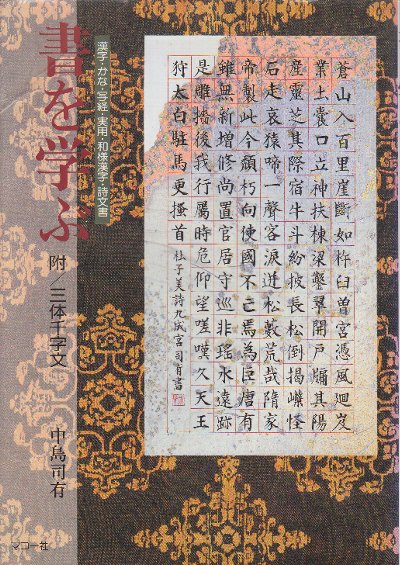 書を学ぶ
漢字・かな・写経・実用・和様漢字・詩文書
附/三体千字文
中島司有
蒼山入百里崖斷如杵臼曽宮憑風迴岌
業土囊口立神扶棟梁鑿翠開戸牖其陽
産靈芝其際宿牛斗紛披長松倒揭嶫怪
石走哀猿啼一聲客淚迸松藪荒哉隋家
帝製此今頽朽向使國不亡焉為巨唐有
雖無新增修尚置官居守巡非瑤水遠跡
是雕牆後我行屬時危仰望嗟嘆久天王
狩太白駐馬更搔首 杜子美詩九成宮司有書